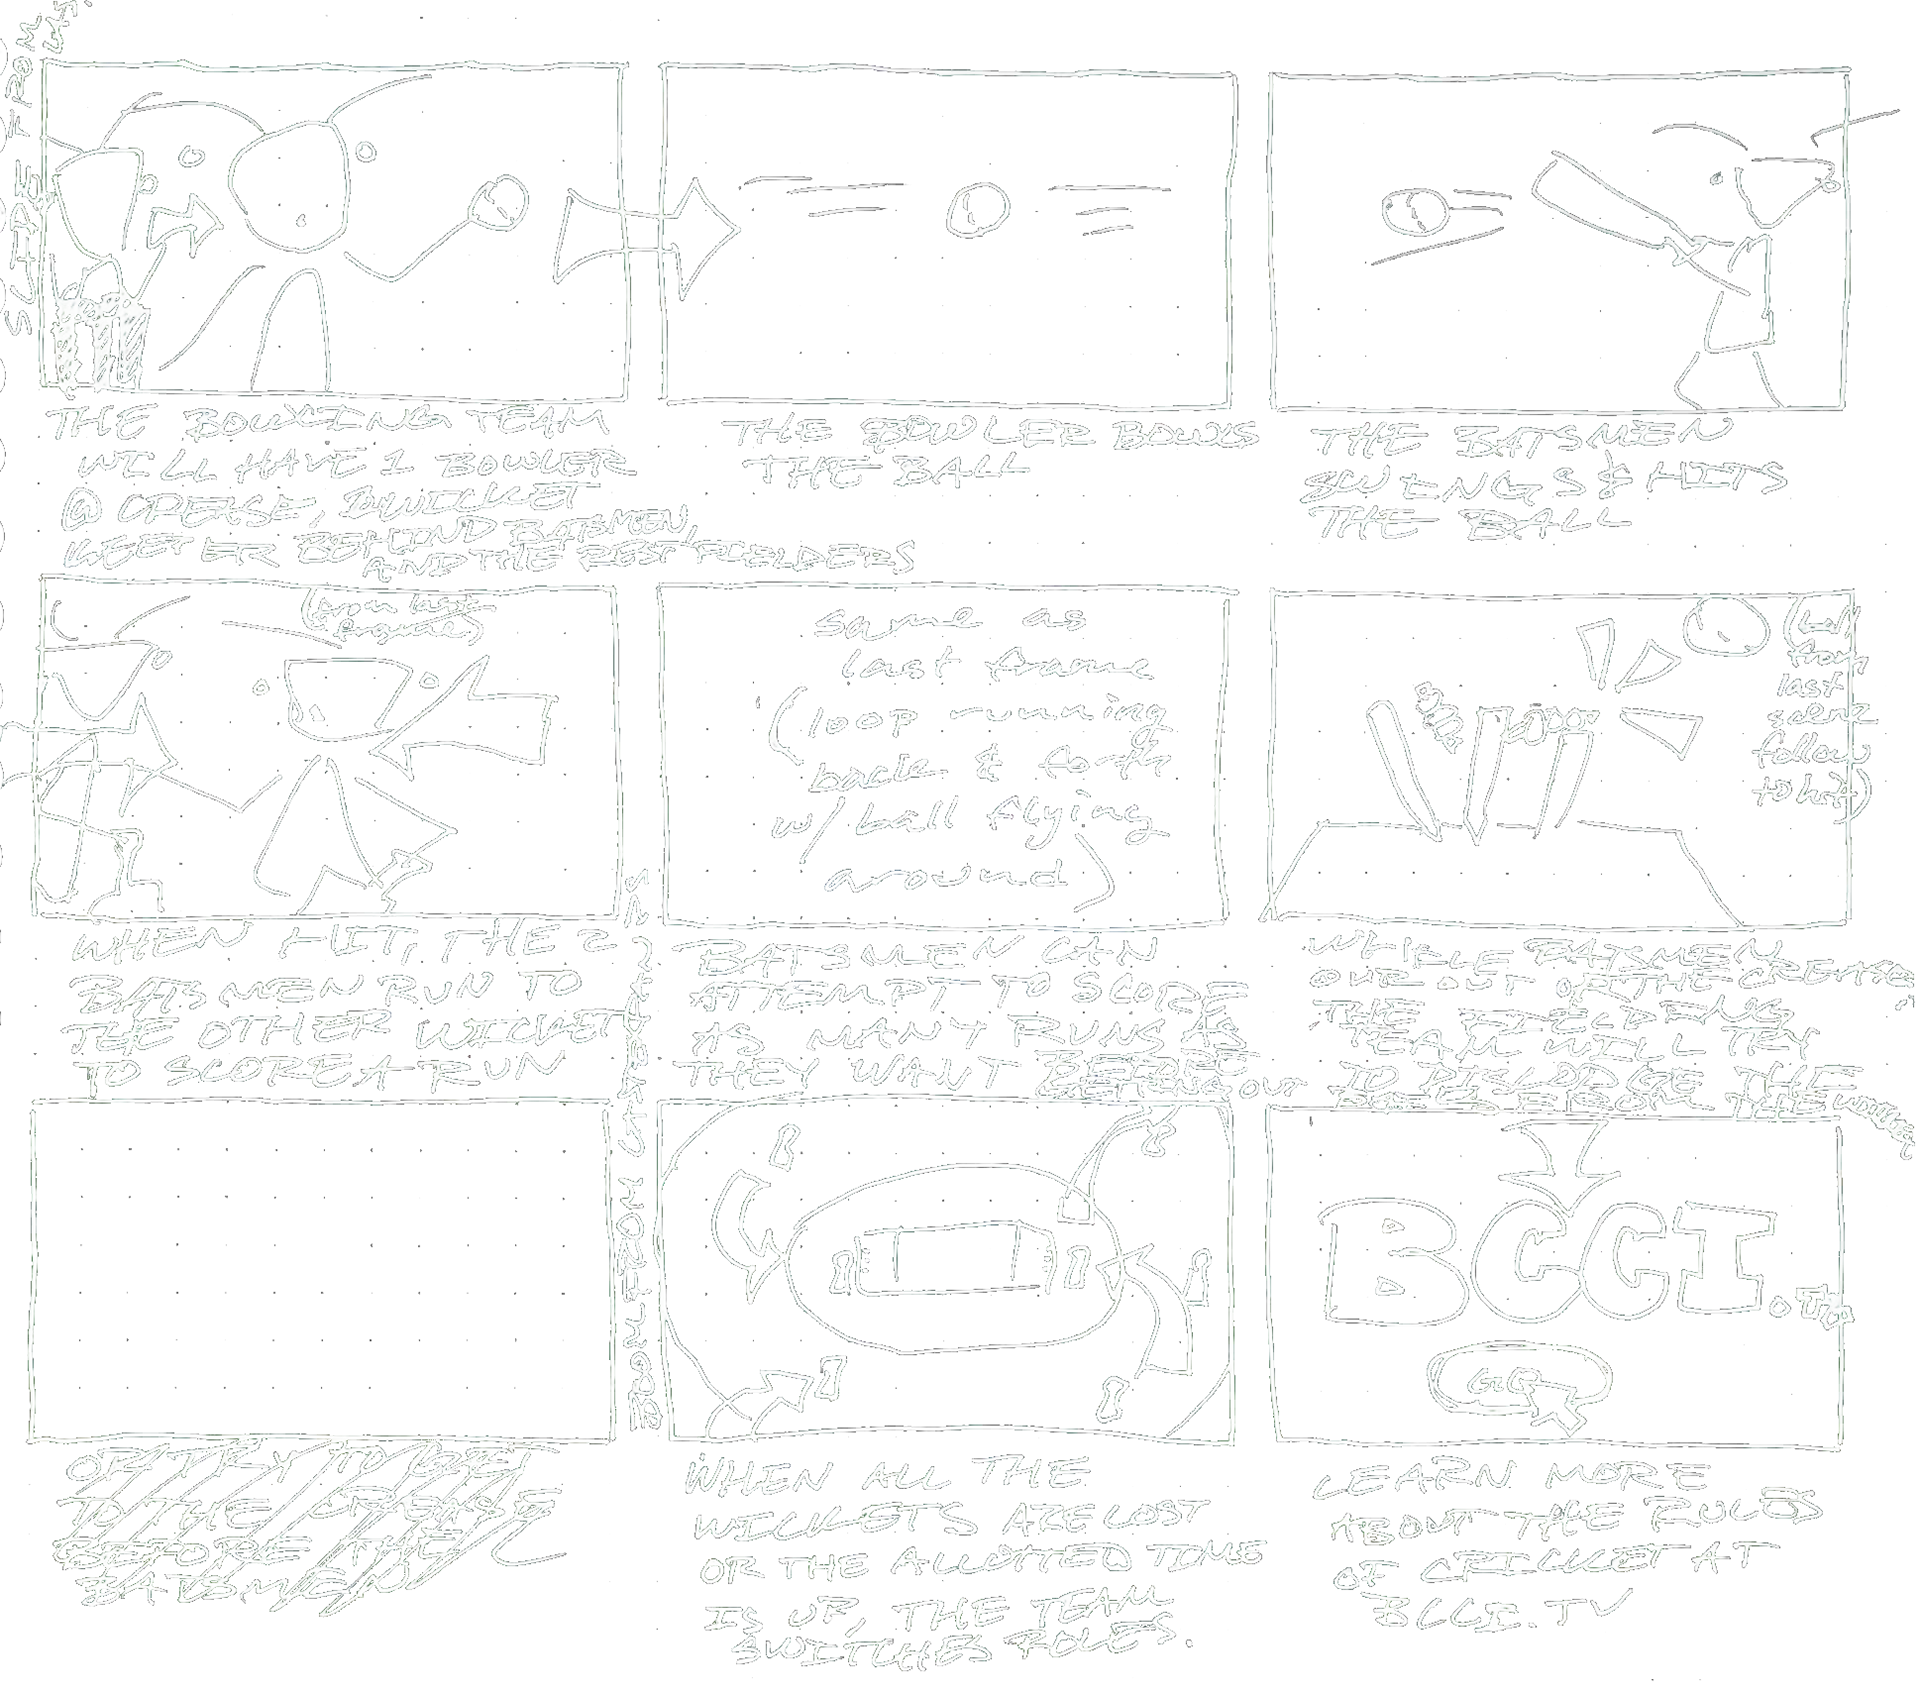 SLIDE FROM
THE BOWLING TEAM
WILL HAVE 1 BOWLER
@ CREASE, WICKET
KEEPER BEHIND BATSMEN,
AND THE REST FIELDERS
THE BOWLER BOWLS
THE BALL
THE BATSMEN
SWINGS & HITS
THE BALL
(from last
frame)
WHEN HIT, THE 2
BATSMEN RUN TO
THE OTHER WICKET
TO SCORE A RUN
same as
last frame
(loop running
back & forth
w/ ball flying
around)
BATSMEN CAN
ATTEMPT TO SCORE
AS MANY RUNS AS
THEY WANT BEFORE
GETTING OUT
(ball
from
last
scene
follow
to hit)
WHILE BATSMEN
OUT OF THE CREASE,
THE FIELDING
TEAM WILL TRY
TO DISLODGE THE
THE
OR TRY TO GET
TO THE CREASE
BEFORE THE
BATSMEN
ZOOM FROM
WHEN ALL THE
WICKETS ARE LOST
OR THE ALLOTTED TIME
IS UP, THE TEAM
SWITCHES ROLES.
BCCI.TV
LEARN MORE
ABOUT THE RULES
OF CRICKET AT
BCCI.TV